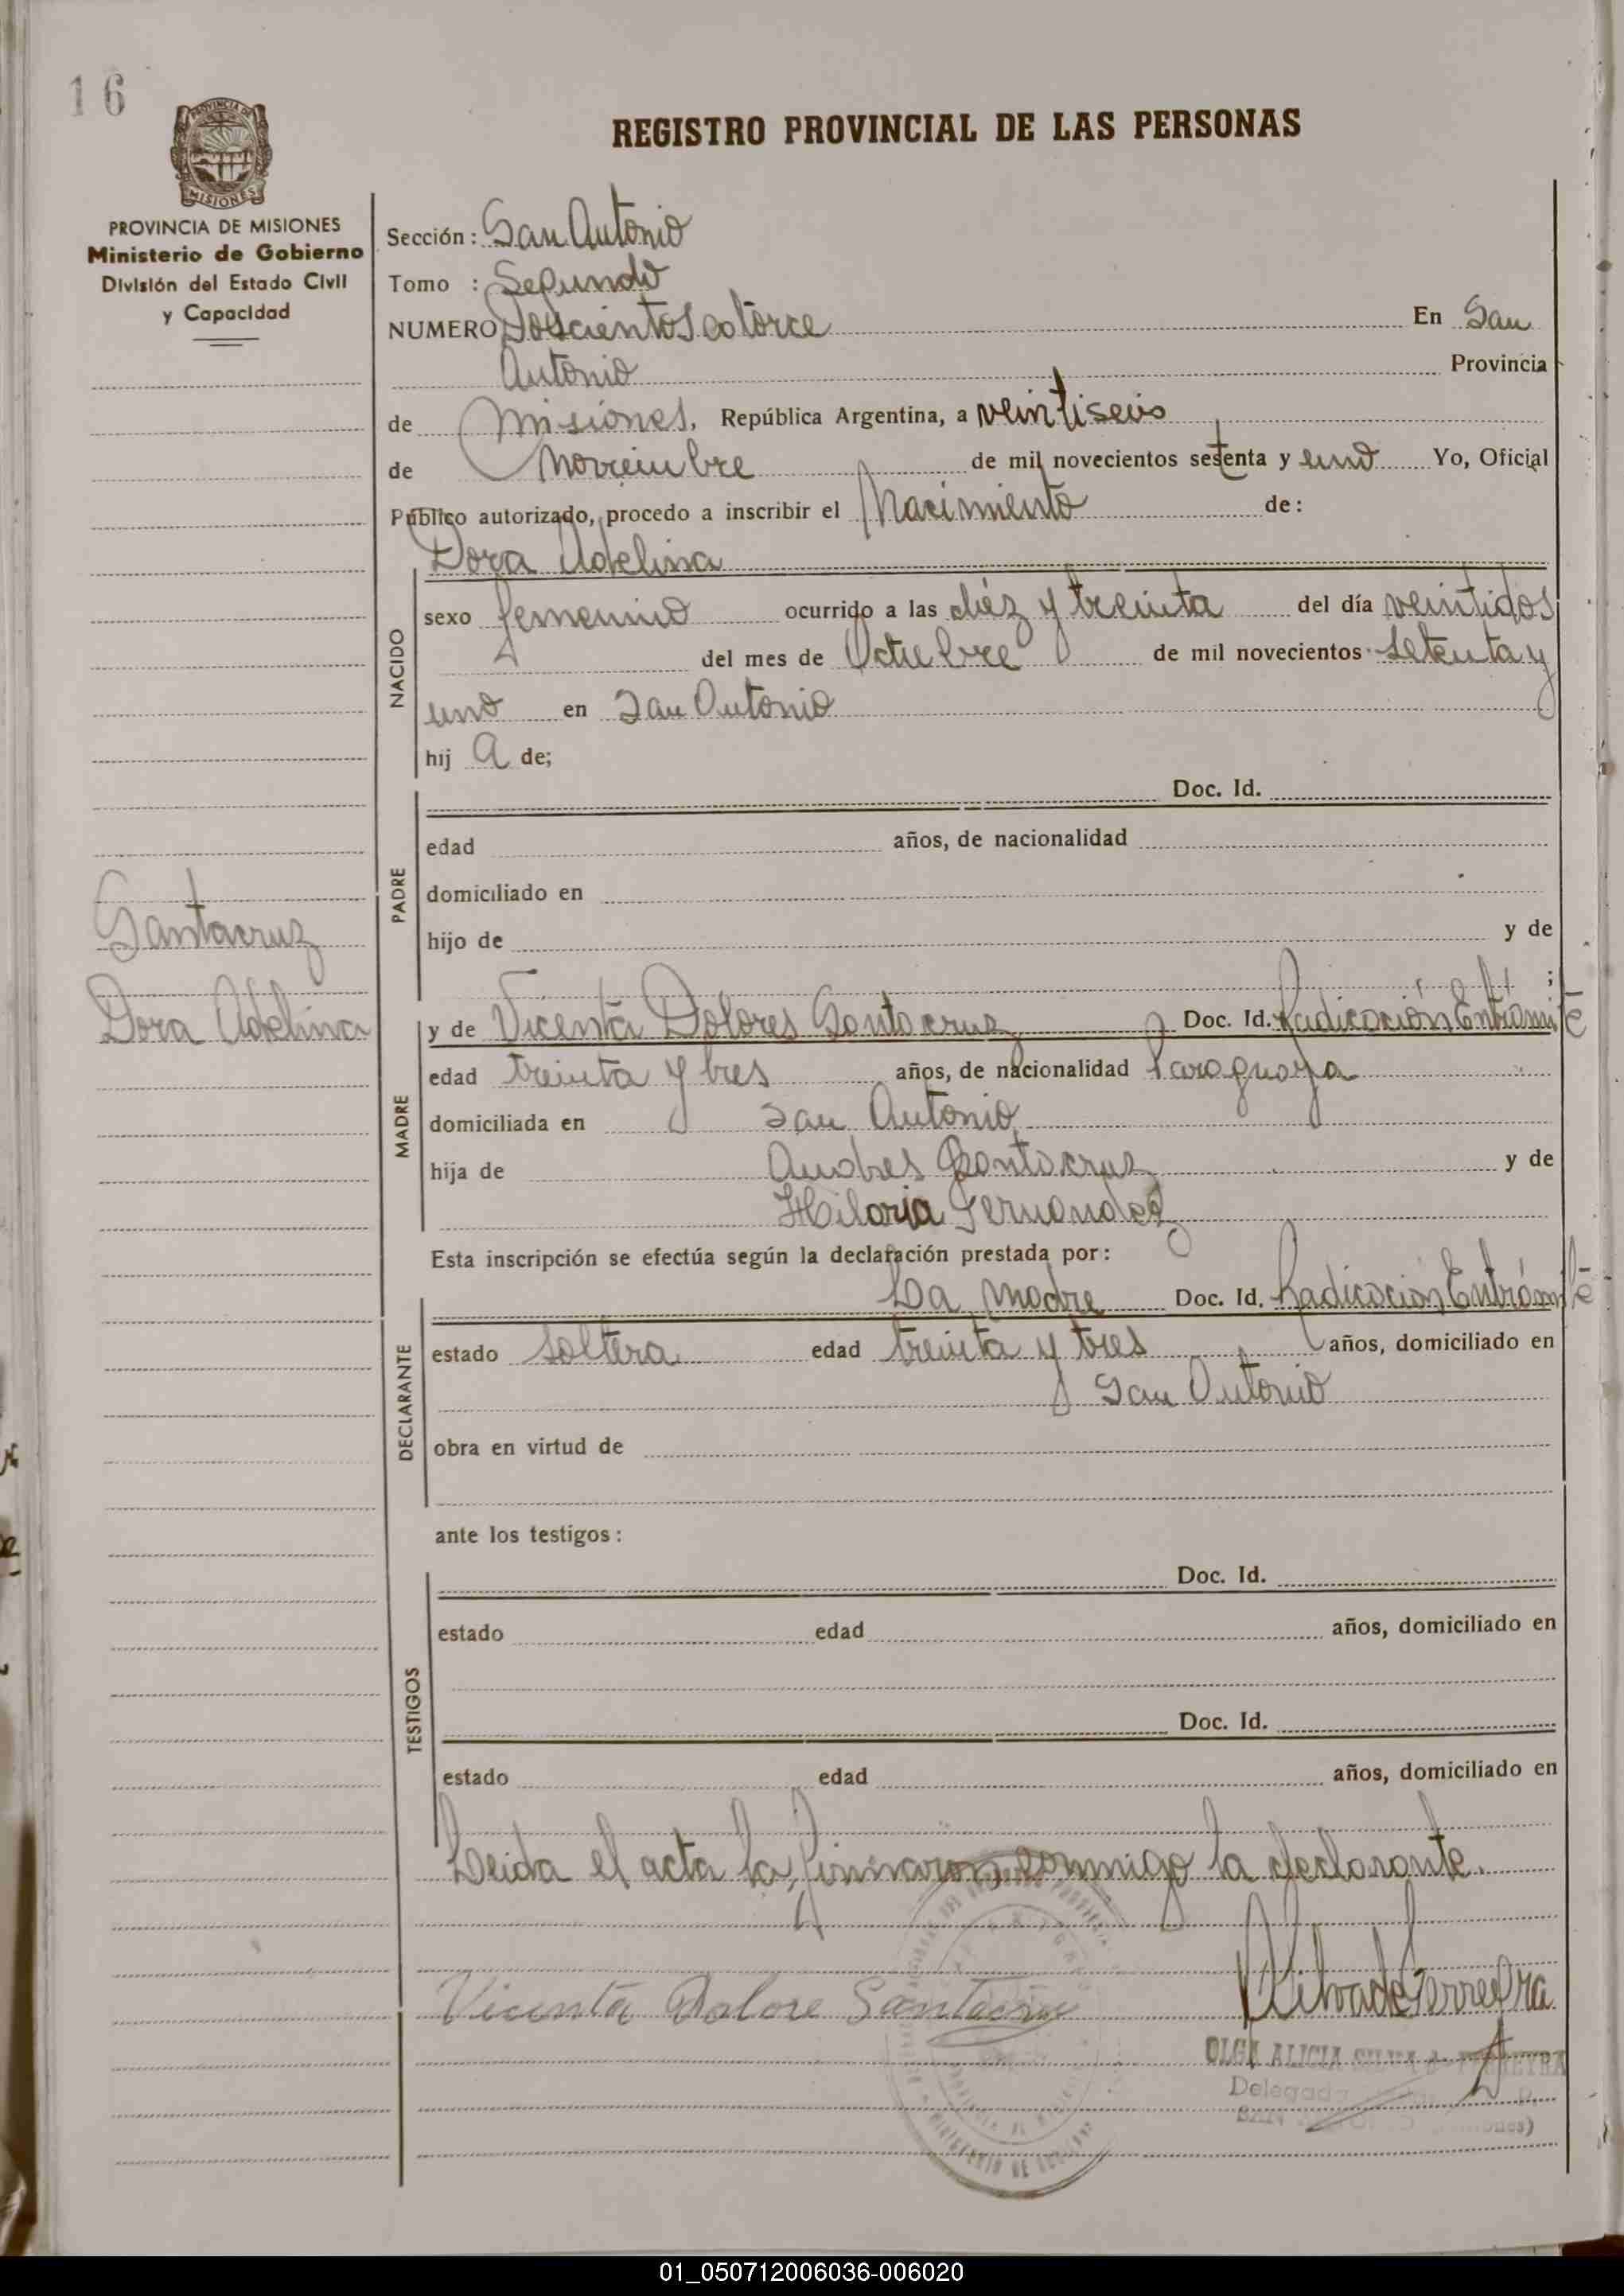 16
PROVINCIA DE
MISIONES
REGISTRO PROVINCIAL DE LAS PERSONAS
PROVINCIA DE MISIONES
Ministerio de Gobierno
División del Estado Civil
y Capacidad
Sección: San Antonio
Tomo : Segundo
NUMERO Doscientos catorce En San
Antonio Provincia
de Misiones, República Argentina, a veintiseis
de Noviembre de mil novecientos setenta y uno Yo, Oficial
Público autorizado, procedo a inscribir el Nacimiento de:
Dora Adelina
NACIDO
sexo femenino ocurrido a las diéz y treinta del día veintidos
del mes de Octubre de mil novecientos setenta y
uno en San Antonio
hij a de;
PADRE
Doc. Id.
edad años, de nacionalidad
domiciliado en
hijo de y de
;
Santacruz
Dora Adelina
MADRE
y de Vicenta Dolores Santacruz Doc. Id. Radicación Entrámite
edad treinta y tres años, de nacionalidad Paraguaya
domiciliada en San Antonio
hija de Andres Santacruz y de
Hilaria Fernandez
Esta inscripción se efectúa según la declaración prestada por:
DECLARANTE
La madre Doc. Id. Radicación Entrámite
estado soltera edad treinta y tres años, domiciliado en
San Antonio
obra en virtud de
ante los testigos:
TESTIGOS
Doc. Id.
estado edad años, domiciliado en
Doc. Id.
estado edad años, domiciliado en
Leida el acta la, firmaron conmigo la declarante.
Vicenta Dolore Santacruz
OSilvadeFerreyra
OLGA ALICIA SILVA de FERREYRA
Delegada
SAN
01_050712006036-006020